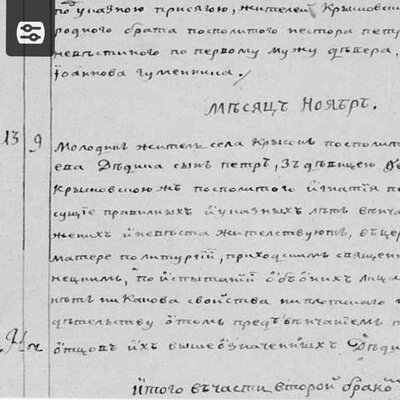 по указною присягою, жителей Крысовски
родного брата посполитого нестора петр
невѣстиного по первому мужу фѣвера,
Іоаннова гуменница.
Мѣсяцъ Ноябръ.
13 9 Молодикъ житель села Крысокъ посполит
ева Дѣдина сынъ петръ, зъ дѣвицею
Крысовскою жъ посполитого Игнатія по
сущіе правилныхъ и указныхъ лѣтъ вѣнча
жених и невѣста жителствуютъ, въ цер
матере по литургіи, приходскимъ священ
нецкимъ, по испытаніи обѣоихъ лица
нѣтъ ли какова свойства ни плотского
дѣтельству о томъ предъ вѣнчаніемъ
отцовъ ихъ вышеозначенныхъ Дѣди
итого въ части второй брако